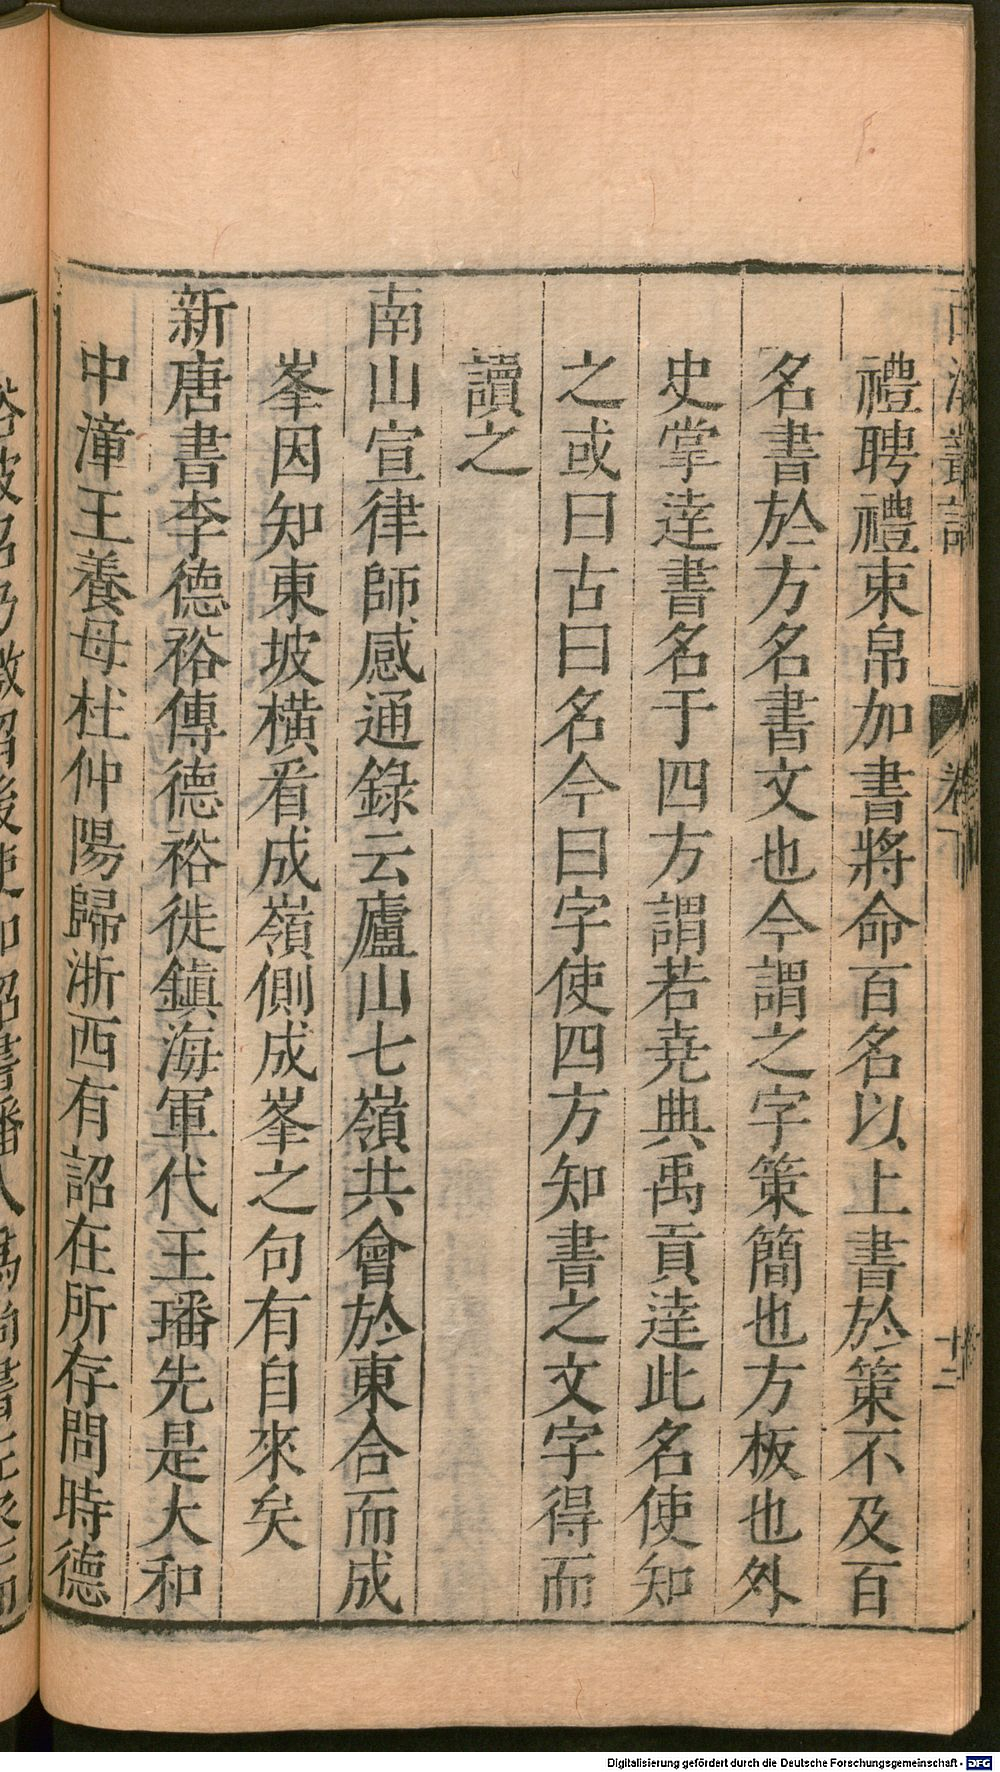 禮聘禮束帛加書將命百名以上書於策不及百
名書於方名書文也今謂之字策簡也方板也外
史掌達書名于四方謂若堯典禹貢達此名使知
之或曰古曰名今曰字使四方知書之文字得而
讀之
南山宣律師感通錄云廬山七嶺共會於東合而成
峯因知東坡橫看成嶺側成峯之句有自來矣
新唐書李德裕傳德裕徙鎭海軍代王璠先是大和
中漳王養母杜仲陽歸浙西有詔在所存問時德
卷下
十二
Digitalisierung gefördert durch die Deutsche Forschungsgemeinschaft - DFG